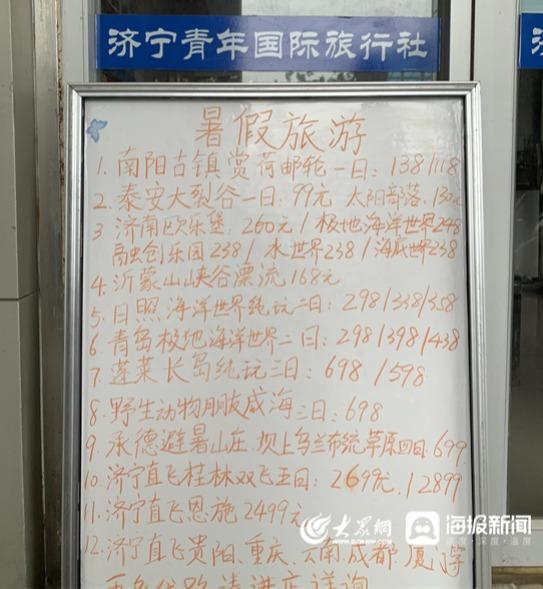 济宁青年国际旅行社
暑假旅游
1. 南阳古镇赏荷邮轮一日: 138/118
2. 泰安大裂谷一日: 99元 太阳部落, 130元
3 济南欧乐堡: 260元/极地海洋世界248
融创乐园238/水世界238/海底世界238
4. 沂蒙山峡谷漂流168元
5. 日照海洋世界纯玩二日: 298/338/358
6 青岛极地海洋世界二日: 298/398/438
7. 蓬莱长岛纯玩三日: 698/598
8. 野生动物朋友威海三日: 698
9. 承德避暑山庄.坝上乌兰布统草原四日. 699
10. 济宁直飞桂林双飞五日: 2699元. 12899
11. 济宁直飞恩施2499元
12. 济宁直飞贵阳、重庆、云南.成都厦门等
请进店详询
大众网
海报新闻
速度·深度·温度